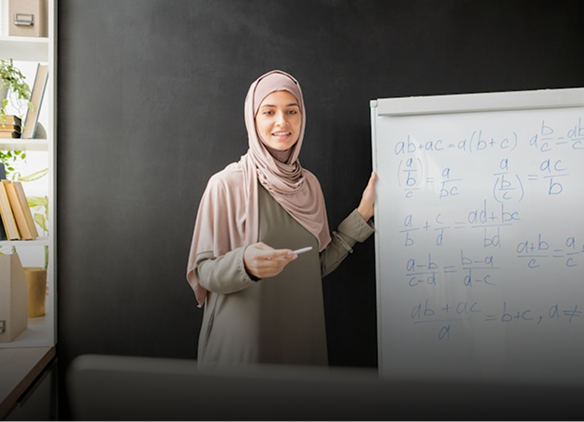 ab+ac=a(b+c) a b/c = ab/c
(a/b)/c = a/bc a/(b/c) = ac/b
a/b + c/d = ad+bc/bd
a-b/c-d = b-a/d-c a+b/c = a/c
ab+ac/a = b+c, a≠